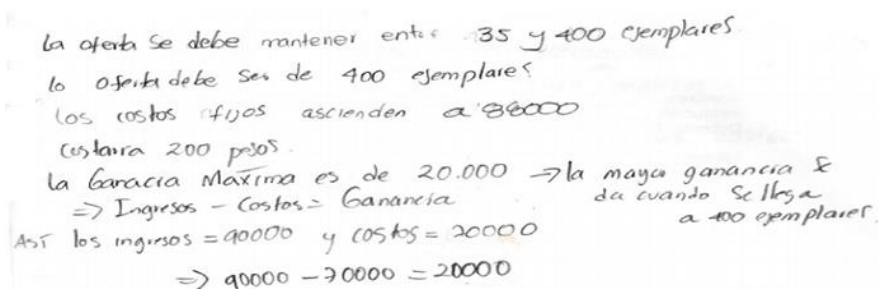 la oferta se debe mantener entre 35 y 400 ejemplares.
la oferta debe ser de 400 ejemplares
los costos fijos ascienden a 88000
costarra 200 pesos.
la Ganacia Maxima es de 20.000 → la mayor ganancia se
da cuando se llega
a 400 ejemplares.
=> Ingresos - Costos = Ganancia
Así los ingresos = 90000 y costos = 70000
=> 90000 - 70000 = 20000